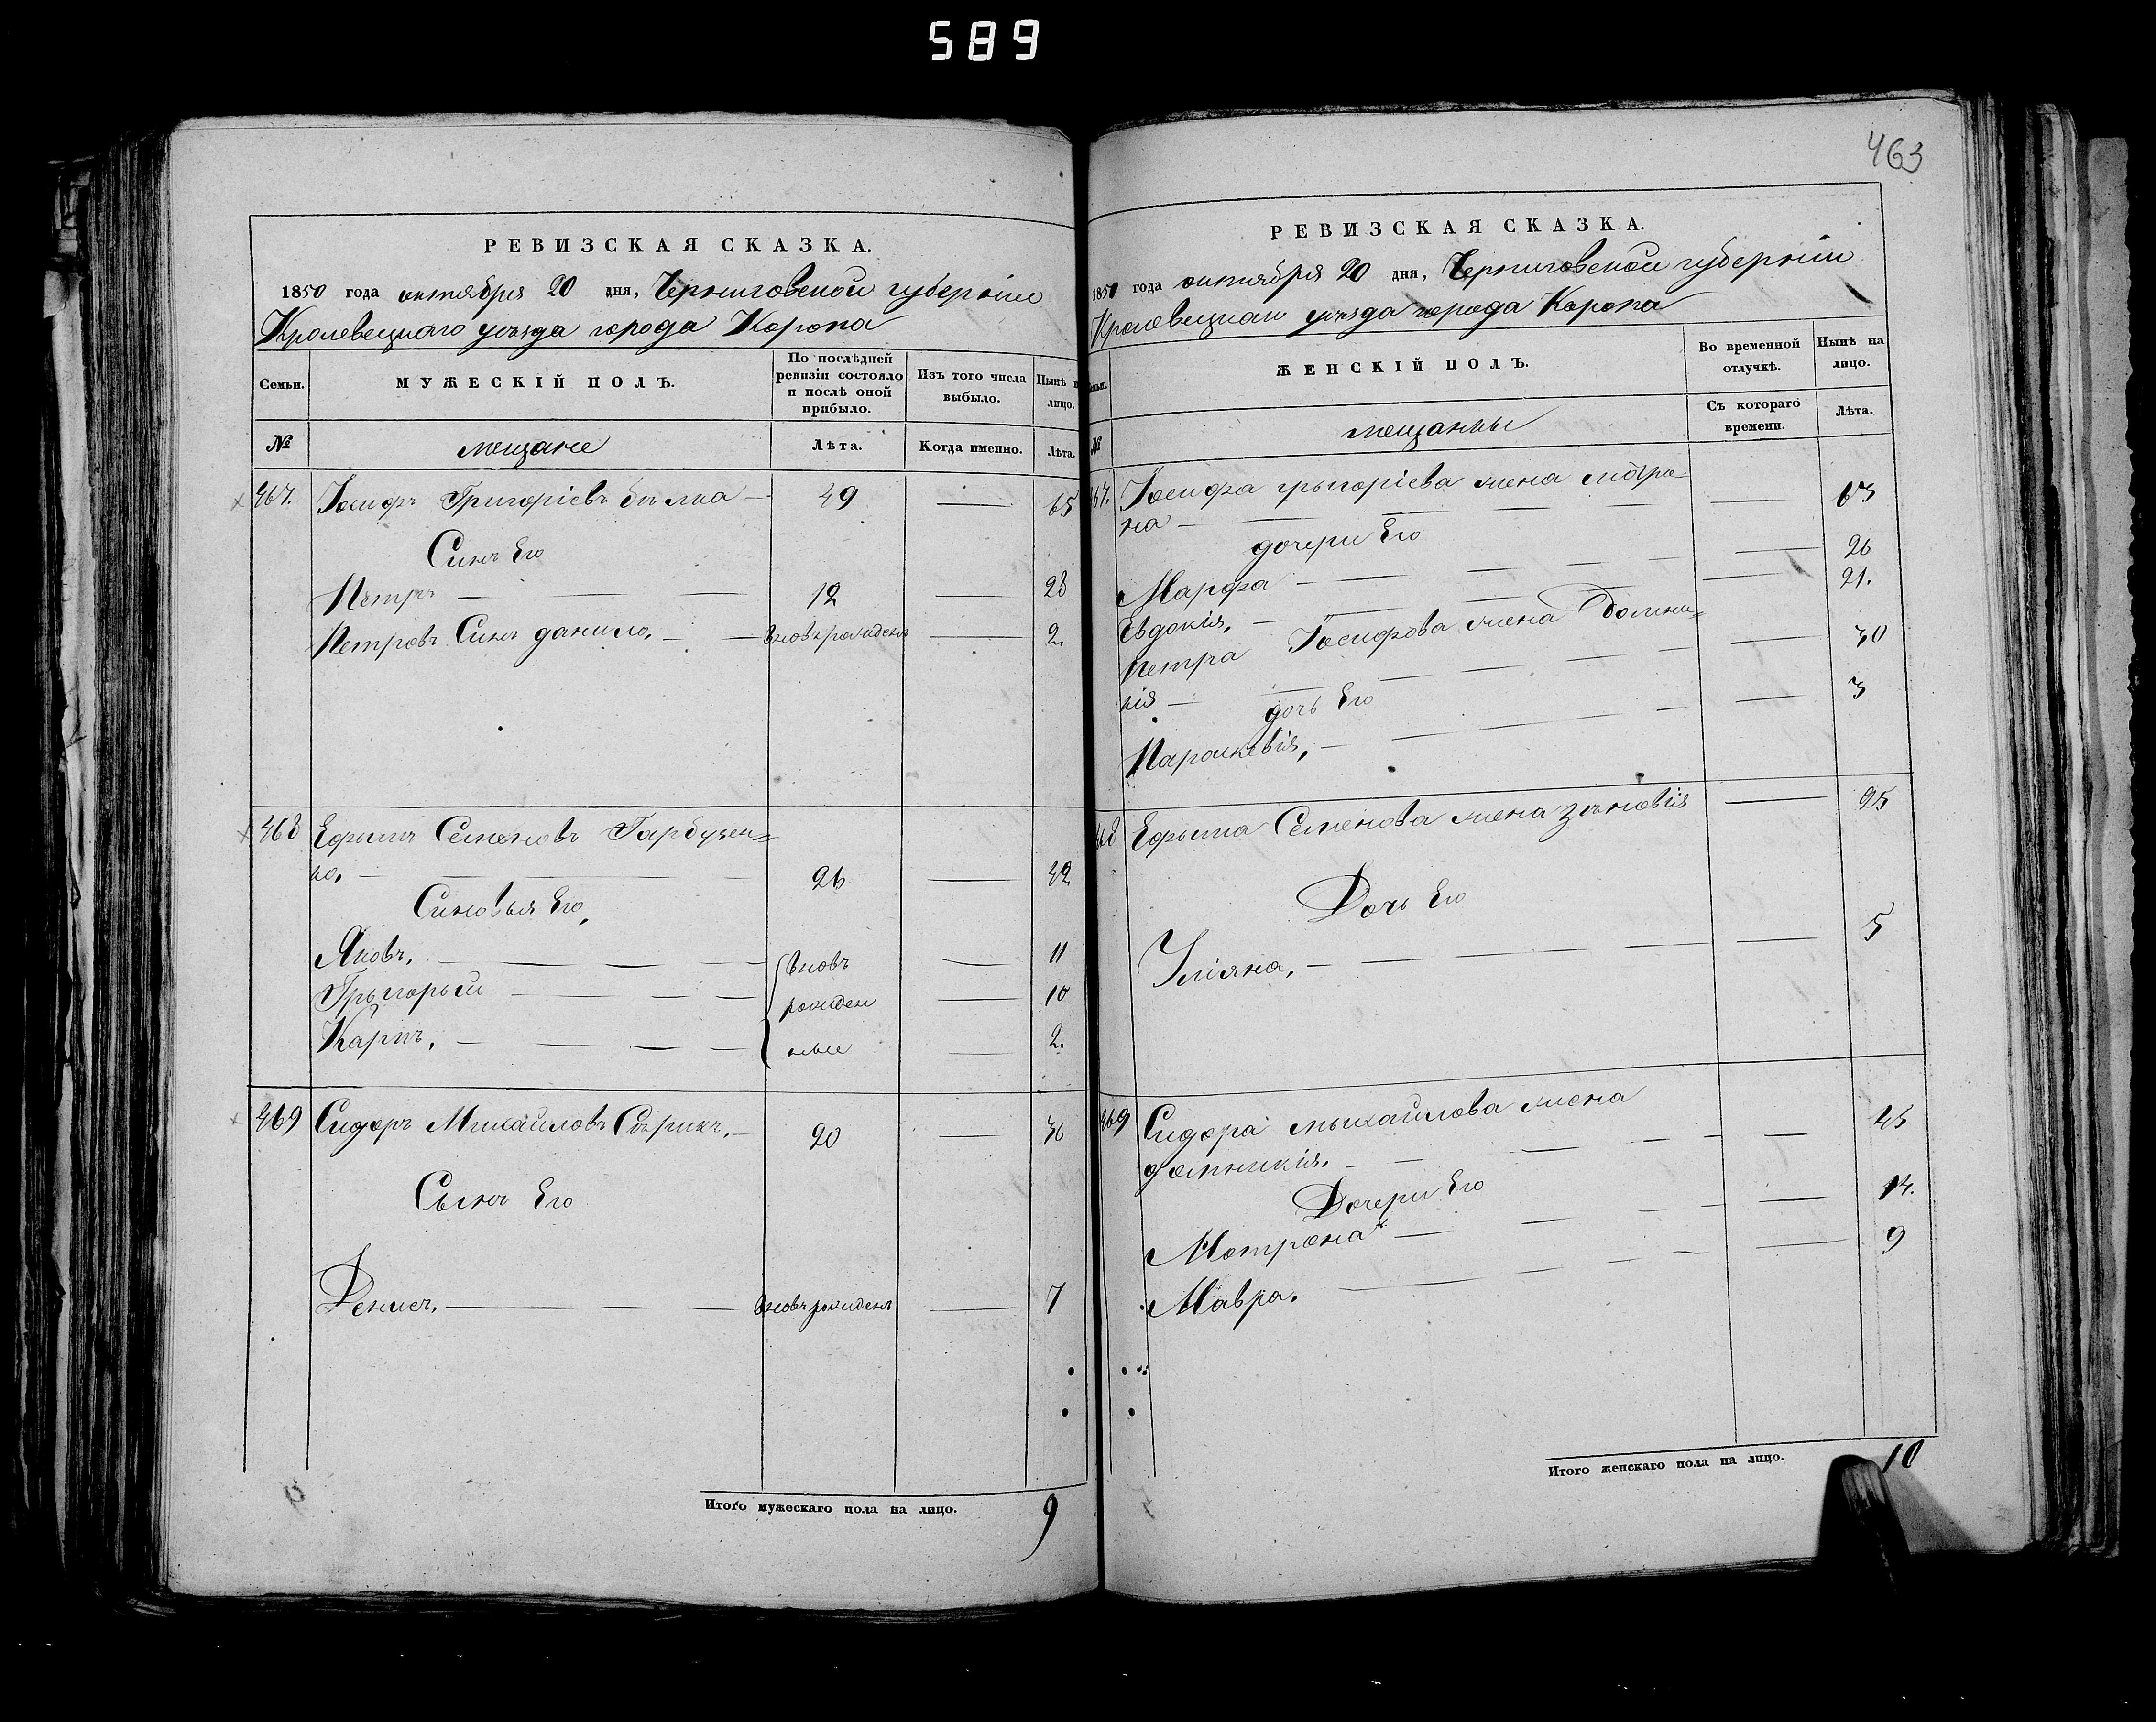 589
РЕВИЗСКАЯ СКАЗКА.
1850 года октября 20 дня, Черниговской губернии
Кролевецкаго уѣзда города Коропа
Семьи. МУЖЕСКІЙ ПОЛЪ. По послѣдней ревизіи состояло и послѣ оной прибыло. Изъ того числа выбыло. Нынѣ на лицо.
№ мещане Лѣта. Когда именно. Лѣта.
467. Іосифъ Григоріевъ 49 — 65
Синъ Его
Петръ — 12 — 28
Петровъ Синъ данило, — вновь рожденъ — 2.
468 Ефримъ Семеновъ Гарбузен=
ко, — 26 — 42
Синовья Его,
Яковъ, — вновь — 11
Грыгорый — рожден — 10
Карпъ, — ные — 2.
469 Сидоръ Михайловъ Сѣрикъ, — 20 — 36
Сынъ Его
Денисъ, — вновь рожденъ — 7
Итого мужескаго пола на лицо. 9
463
РЕВИЗСКАЯ СКАЗКА.
1850 года октября 20 дня, Черниговской губернии
Кролевецкаго уѣзда города Коропа
ЖЕНСКІЙ ПОЛЪ. Во временной отлучкѣ. Нынѣ на лицо.
№ мещанки Съ котораго времени. Лѣта.
467. Іосифа грыгоріева жена мотро=
на — 63
дочери Его
Марфа — 26
Евдокія, — 21.
Петра Іосифова жена Домни=
кія — 30
дочь Его
Параскевія, — 3
468 Ефрыма Семенова жена зѣновія — 25
Дочь Его
Уліяна, — 5
469 Сидора мыхайлова жена
домникія. — 43
Дочери Его
Мотрона — 14.
Мавра. — 9
Итого женскаго пола на лицо. 10